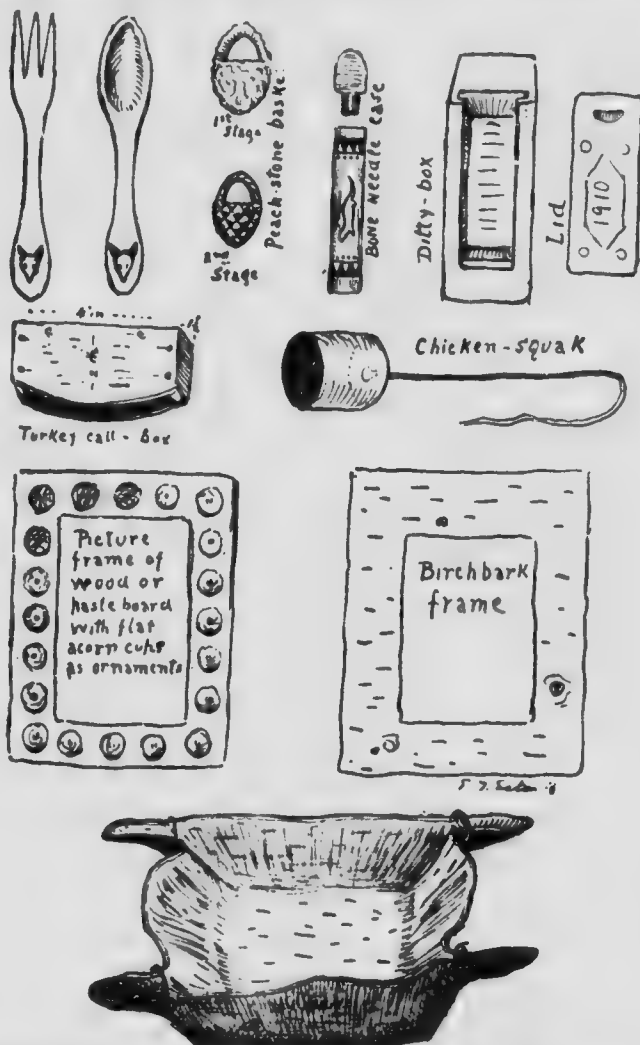 1st
Stage
Peach-stone baske
2nd
Stage
Bone Needle case
Ditty-box
Lid
1910
4 in
Turkey call - Box
Chicken-squaK
Picture
frame of
wood or
paste board
with flat
acorn cups
as ornaments
Birchbark
frame